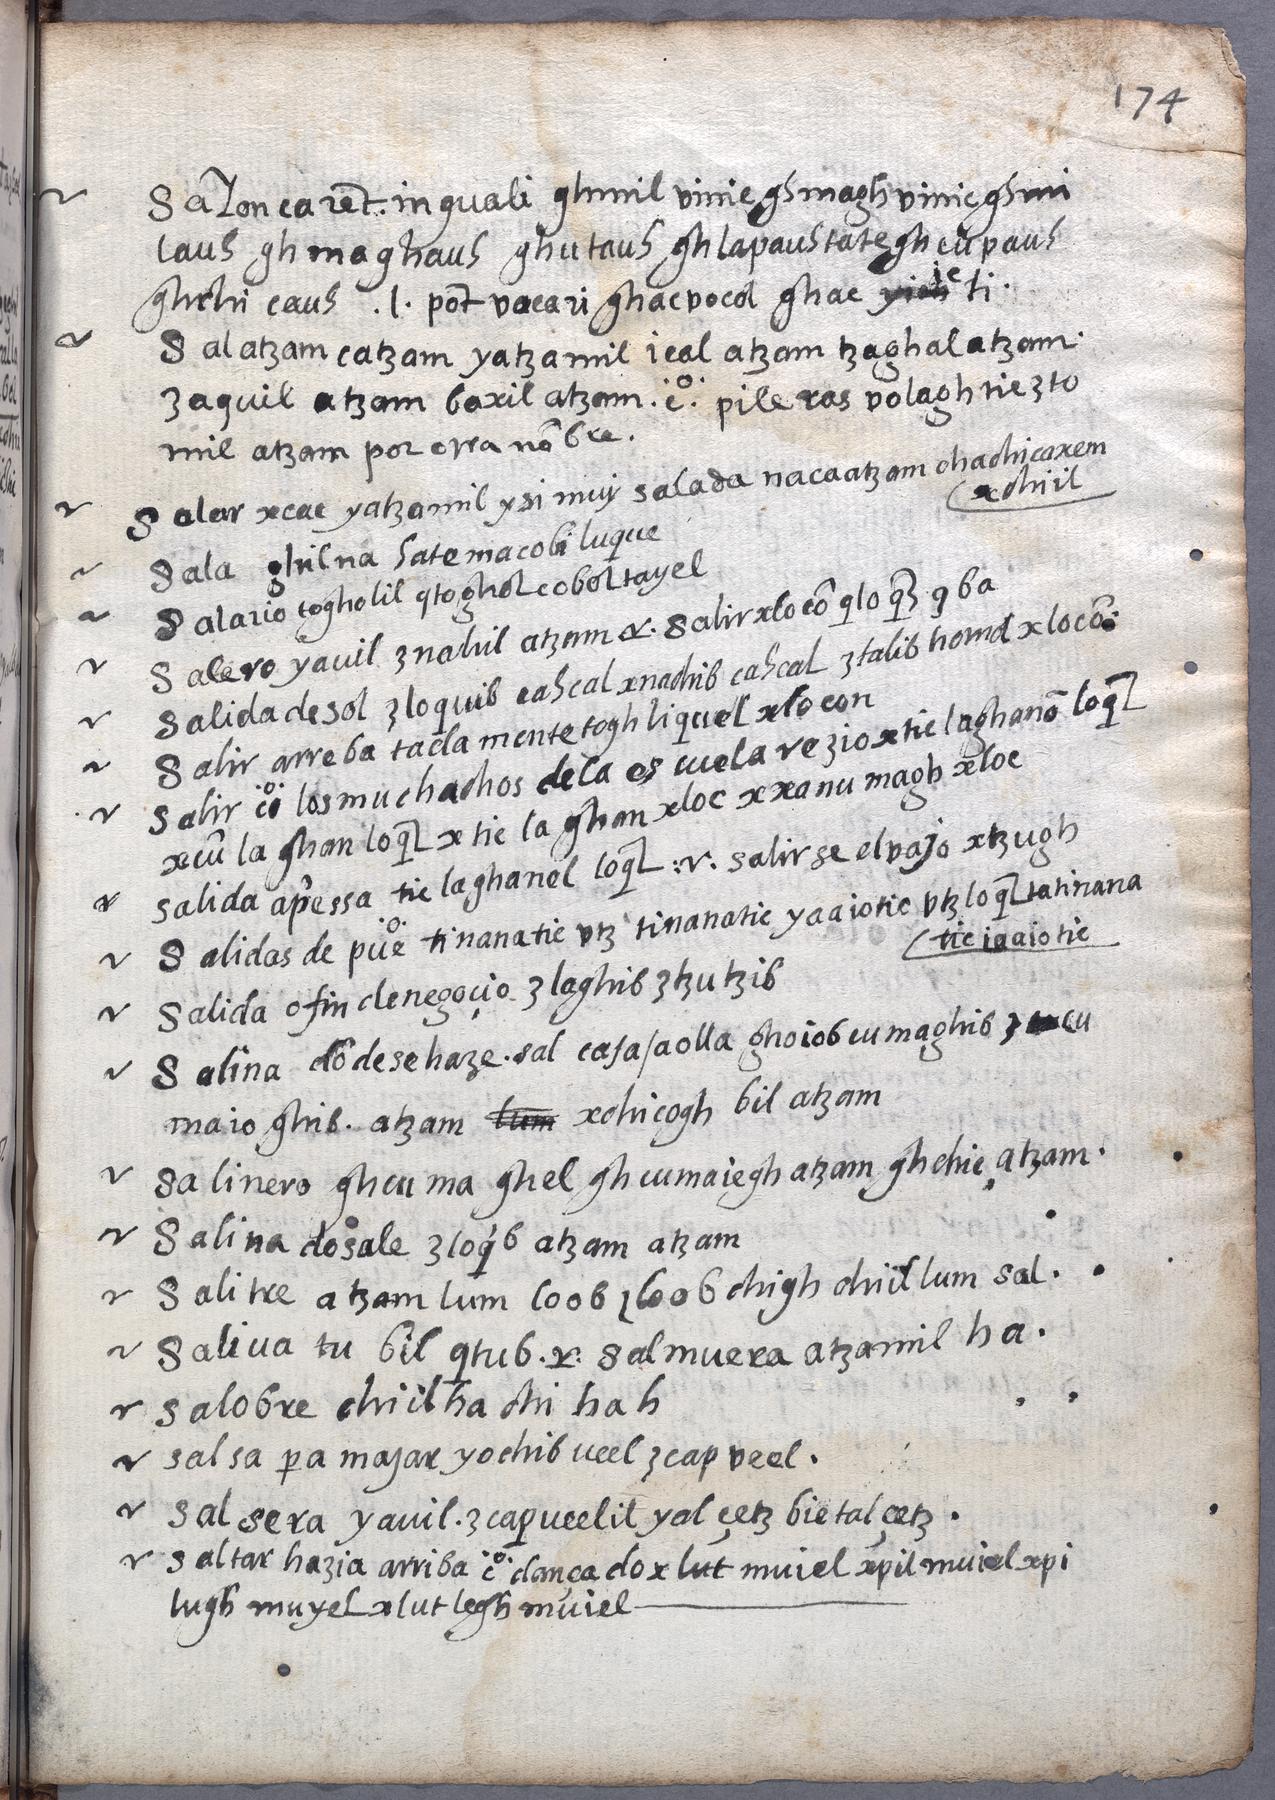 174
Sazon ca ret. in quali ghinil vinic ghmagh vinic ghmi
laus gh maghaus ghutaus gh lapaus tate gh cu paus
ghchi caus .l. pot vacari ghac vocol ghac ti.
S al atzam catzam yatzamil ical atzam tzaghal atzam.
zaquil atzam baxil atzam. c. pile ras volagh tic zto
mil atzam por otra nõbre.
S alar xcac yatzamil ysi muy salada naca atzam chachicaxem
xchiil
S ala ghilna hatemacobi luque
S alario togholil qtoghol cobol tayel
S alero yauil znahil atzam r. salir xlocõ qlo q̃z q ba
salida de sol zloquib cahcal xnachib cahcal ztalib homol xlocõ:
S alir arreba tada mente togh liquel xlocon
salir cõ los muchachos dela escuela rezio xtic laghanõ loq̃l
xcũ la ghan loq̃l xtic la ghan xloc xxanu magh xloc
salida apressa tic laghanel loq̃l :r. salirse el vajo xtzugh
S alidas de pue tinanatic vtz tinanatic yaaiotic vtz loq̃l tatinana
tic iaaiotic
salida o fin de negoçio zlaghib ztzutzib
S alina dõde se haze. sal casa/aolla ghoiob cumaghib z cu
maioghib. atzam xchicogh bil atzam
salinero ghcu maghel gh cumaiegh atzam ghchic atzam.
S alina do sale zloq́b atzam atzam
S alitre atzam lum loob zloob chigh chiil lum sal.
Saliua tu bil qtub. r. salmuera atzamil ha.
salobre chiil ha chi hah
salsa pa majar yochib ueel zcap veel.
salsera yauil. zcapueelil yal çetz bictal çetz.
saltar hazia arriba c dança do xlut muiel xpil muiel xpi
lugh muyel xlut legh muiel